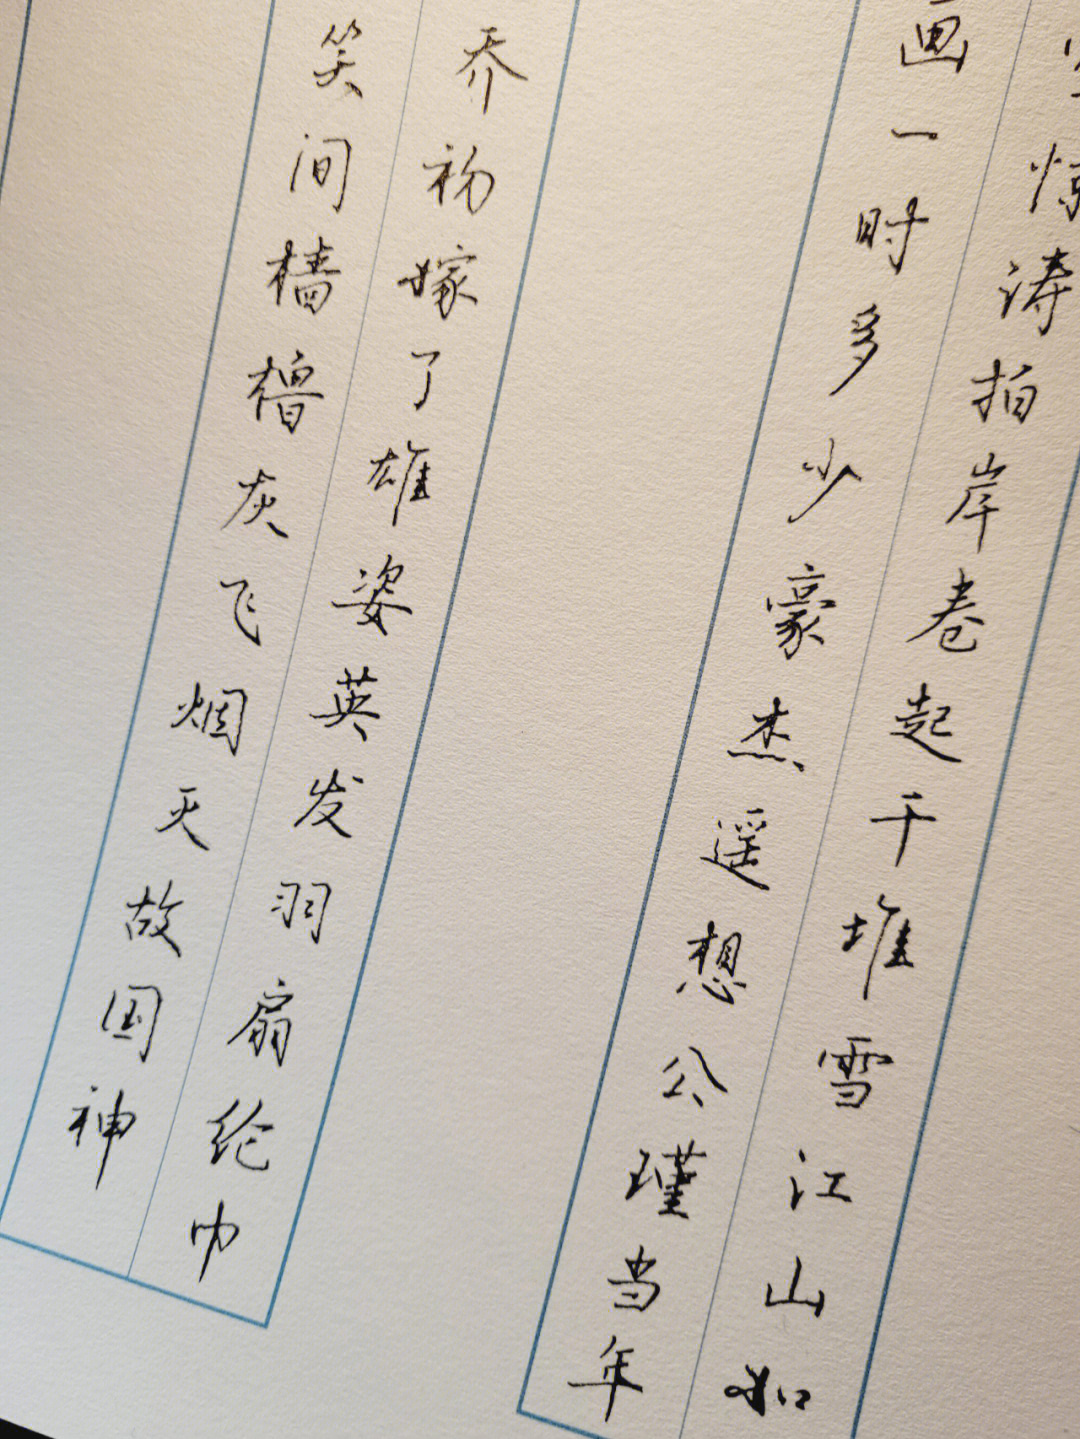 惊涛拍岸卷起千堆雪江山如
画一时多少豪杰遥想公瑾当年
乔初嫁了雄姿英发羽扇纶巾
笑间樯橹灰飞烟灭故国神